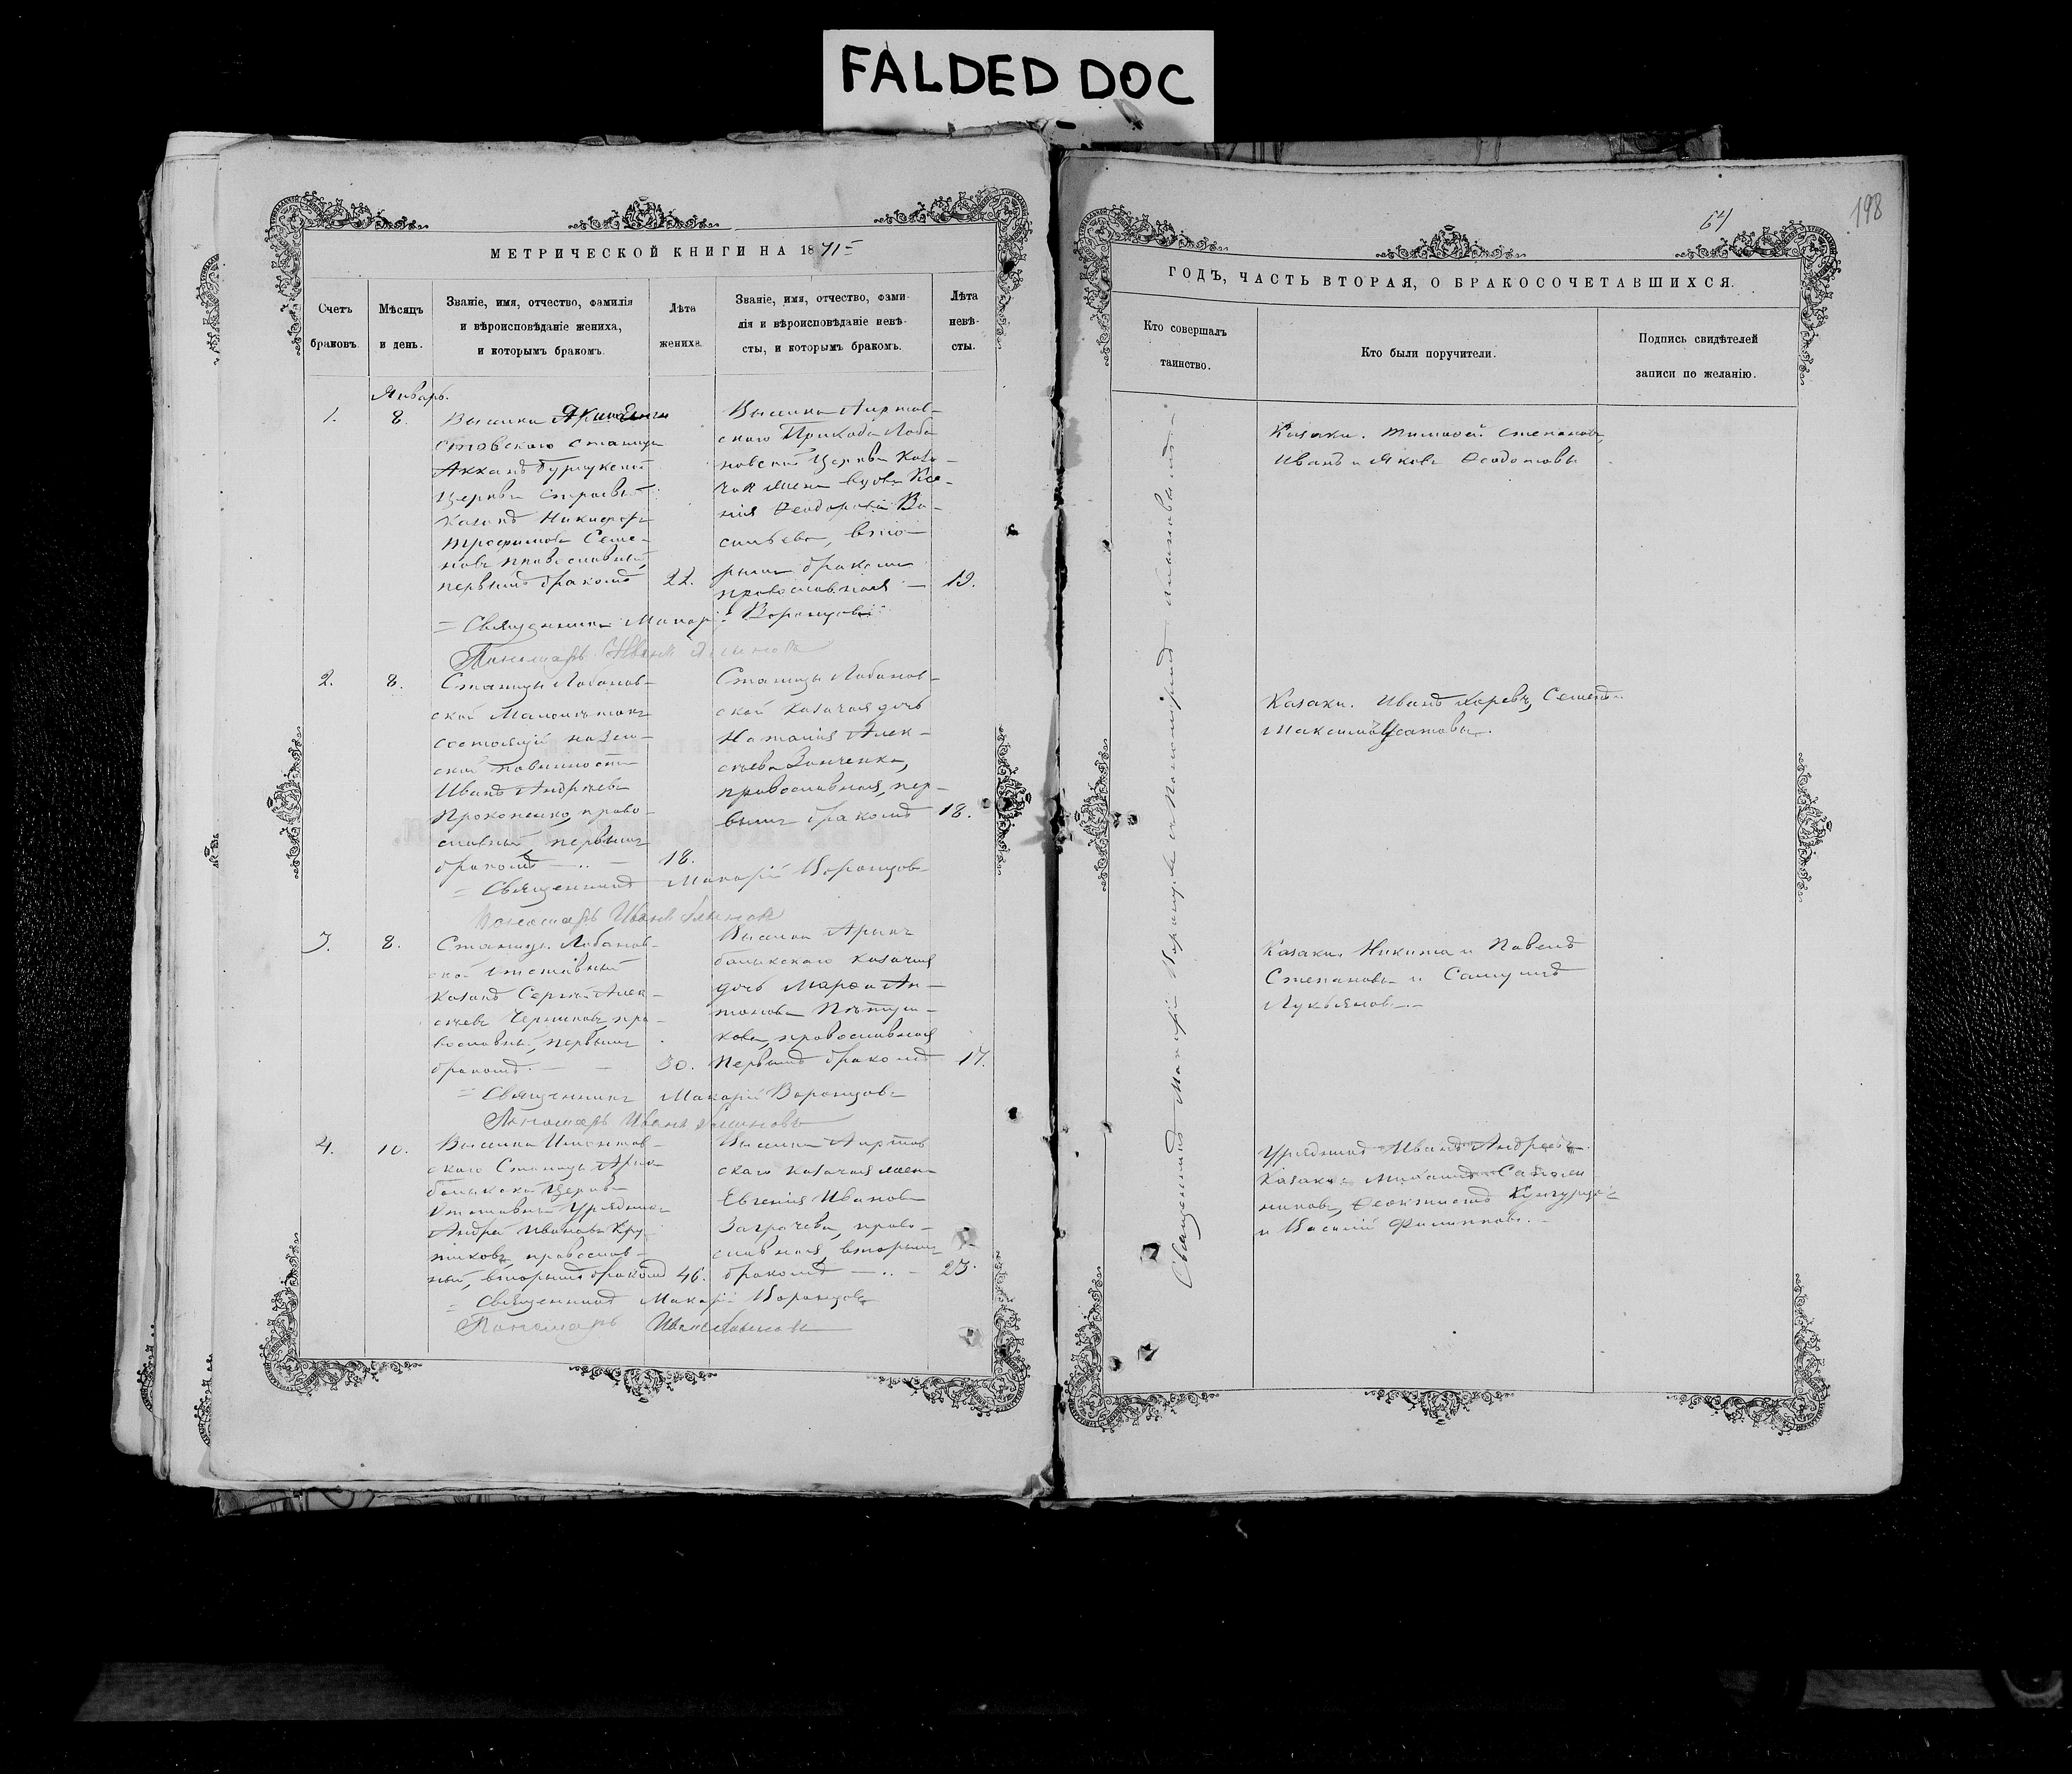 FALDED DOC
198
64
МЕТРИЧЕСКОЙ КНИГИ НА 1871
Счетъ браковъ.
Мѣсяцъ и день.
Званіе, имя, отчество, фамилія
и вѣроисповѣданіе жениха,
и которымъ бракомъ.
Лѣта
жениха.
Званіе, имя, отчество, фами-
лія и вѣроисповѣданіе невѣ-
сты, и которымъ бракомъ.
Лѣта
невѣ-
сты.
Январь.
1.
8.
Станицы
Церкви
Казакъ Никифоръ
Трофимовъ Семе-
новъ православный,
первымъ бракомъ
22.
Выселка Аиртав-
скаго Прихода Лоба
новской Церкви Каза-
чья жена вдова Ксе-
нія Ѳеодорова Ва-
сильева, вто-
рымъ бракомъ
православная
19.
Священникъ Макарій Воронцовъ
Пономарь Иванъ
2.
8.
Станицы Лобанов-
ской
состоящій на зем-
ской повинности
Иванъ Андреевъ
Прокопенко, право-
славный первымъ
бракомъ
18.
Станицы Лобанов-
ской казачья дочь
Наталія Алек-
сѣева Зинченко,
православная, пер-
вымъ бракомъ
18.
Священникъ Макарій Воронцовъ
Пономарь Иванъ
3.
8.
Станицы Лобанов-
ской отставный
казакъ Сергѣй Алек-
сѣевъ Черниковъ пра-
вославный, первымъ
бракомъ
30.
Выселка Арык
балыкскаго казачья
дочь Марѳа Ан-
тонова Пѣтухо-
кова, православная
первымъ бракомъ
17.
Священникъ Макарій Воронцовъ
Пономарь Иванъ
4.
10.
Выселка Имантав-
скаго Станицы Арык-
балыкской Церкви
Отставный Урядникъ
Андрей Ивановъ Кру-
тиковъ, православ-
ный, вторымъ бракомъ
46.
Выселка Аиртав
скаго казачья жена
Евгенія Иванова
право-
славная, вторымъ
бракомъ
23.
Священникъ Макарій Воронцовъ
Пономарь Иванъ
ГОДЪ, ЧАСТЬ ВТОРАЯ, О БРАКОСОЧЕТАВШИХСЯ.
Кто совершалъ
таинство.
Кто были поручители.
Подпись свидѣтелей
записи по желанію.
Священникъ Макарій Воронцовъ съ Пономаремъ
Казаки. Тимоѳей Степановъ,
Иванъ и Яковъ Ѳеодотовы
Казаки. Иванъ Харевъ, Семенъ и
Максимъ Усатовы.
Казаки. Никита и Павелъ
Степановы и Самуилъ
Лукьяновъ.
Урядникъ Иванъ Андреевъ
Казаки: Михаилъ
Ѳеоктистъ
и Василій Филипповъ.